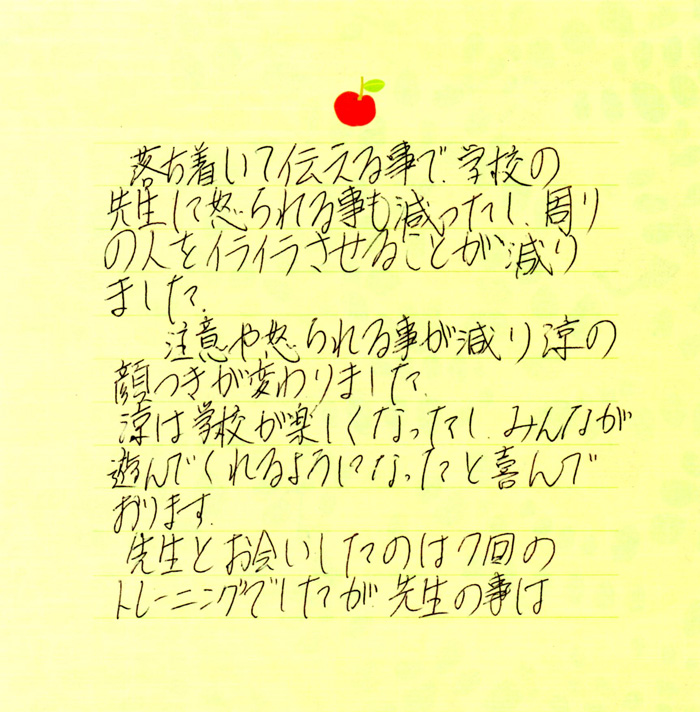 落ち着いて伝える事で、学校の
先生に怒られる事も減ったし、周り
の人をイライラさせることが減り
ました。
注意や怒られる事が減り涼の
顔つきが変わりました。
涼は学校が楽しくなったし、みんなが
遊んでくれるようになったと喜んで
おります。
先生とお会いしたのは7回の
トレーニングでしたが、先生の事は